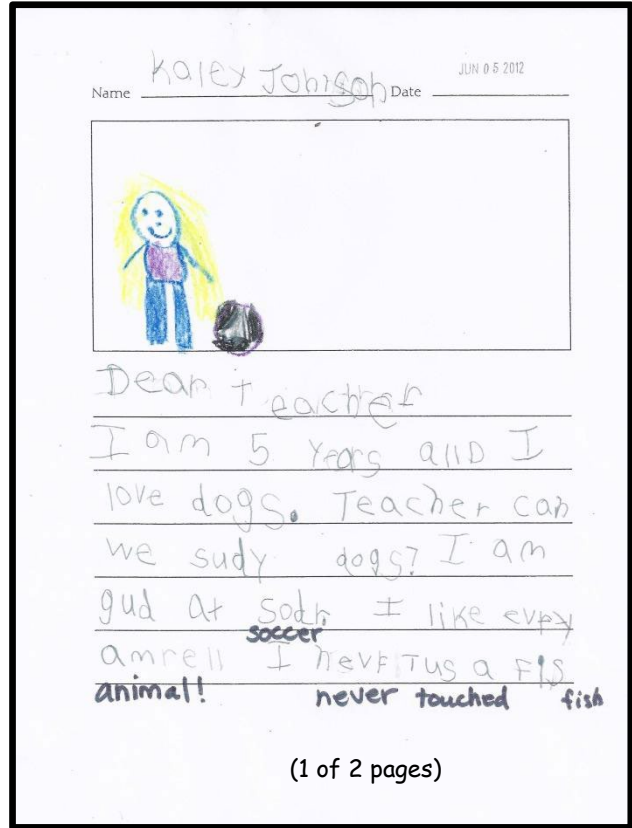 Name Kaley Johnson Date JUN 05 2012
Dear teacher
I am 5 years allD I
love dogs. Teacher can
we sudy dogs? I am
gud at Sodr I like evry
soccer
amrell I nevr Tus a FIS
animal! never touched fish
(1 of 2 pages)